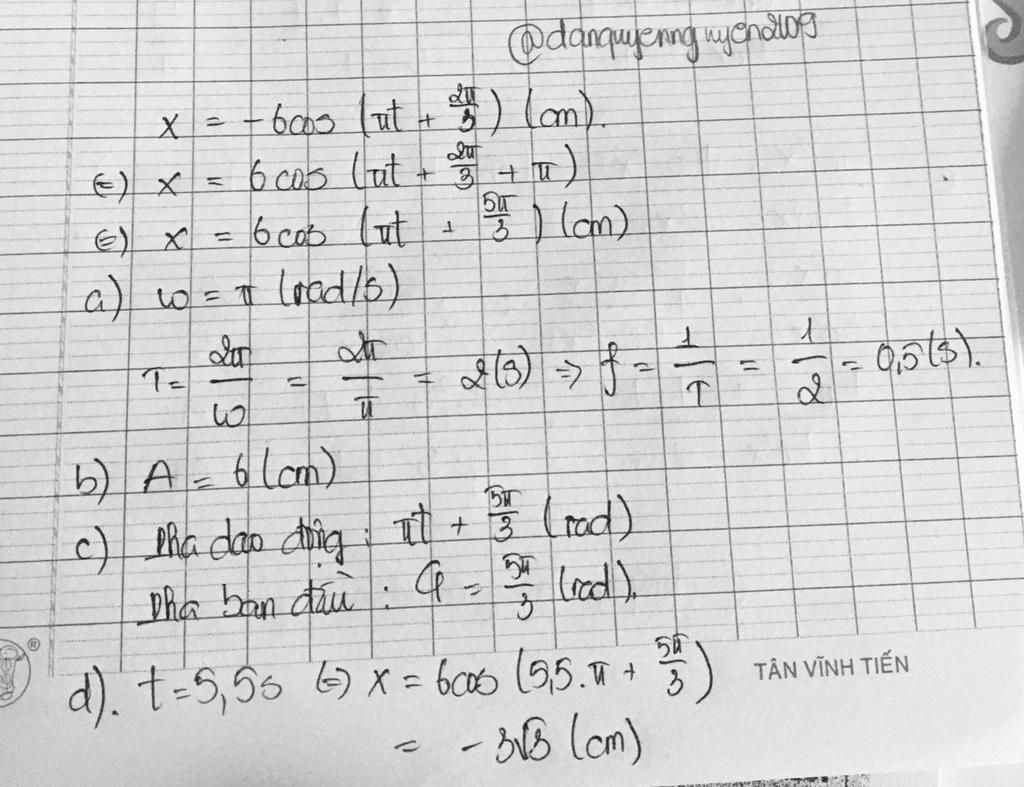 @danquyennguyen2109
x = -6cos (πt + 2π/3) (cm).
(=) x = 6cos (πt + 2π/3 + π)
(=) x = 6cos (πt + 5π/3) (cm)
a) ω = π (rad/s)
T = 2π/ω = 2π/π = 2(s) => f = 1/T = 1/2 = 0,5(s).
b) A = 6 (cm)
c) pha dao động : πt + 5π/3 (rad)
pha ban đầu : φ = 5π/3 (rad).
®
d). t = 5,5s (=) x = 6cos (5,5.π + 5π/3)
TÂN VĨNH TIẾN
= -3√3 (cm)